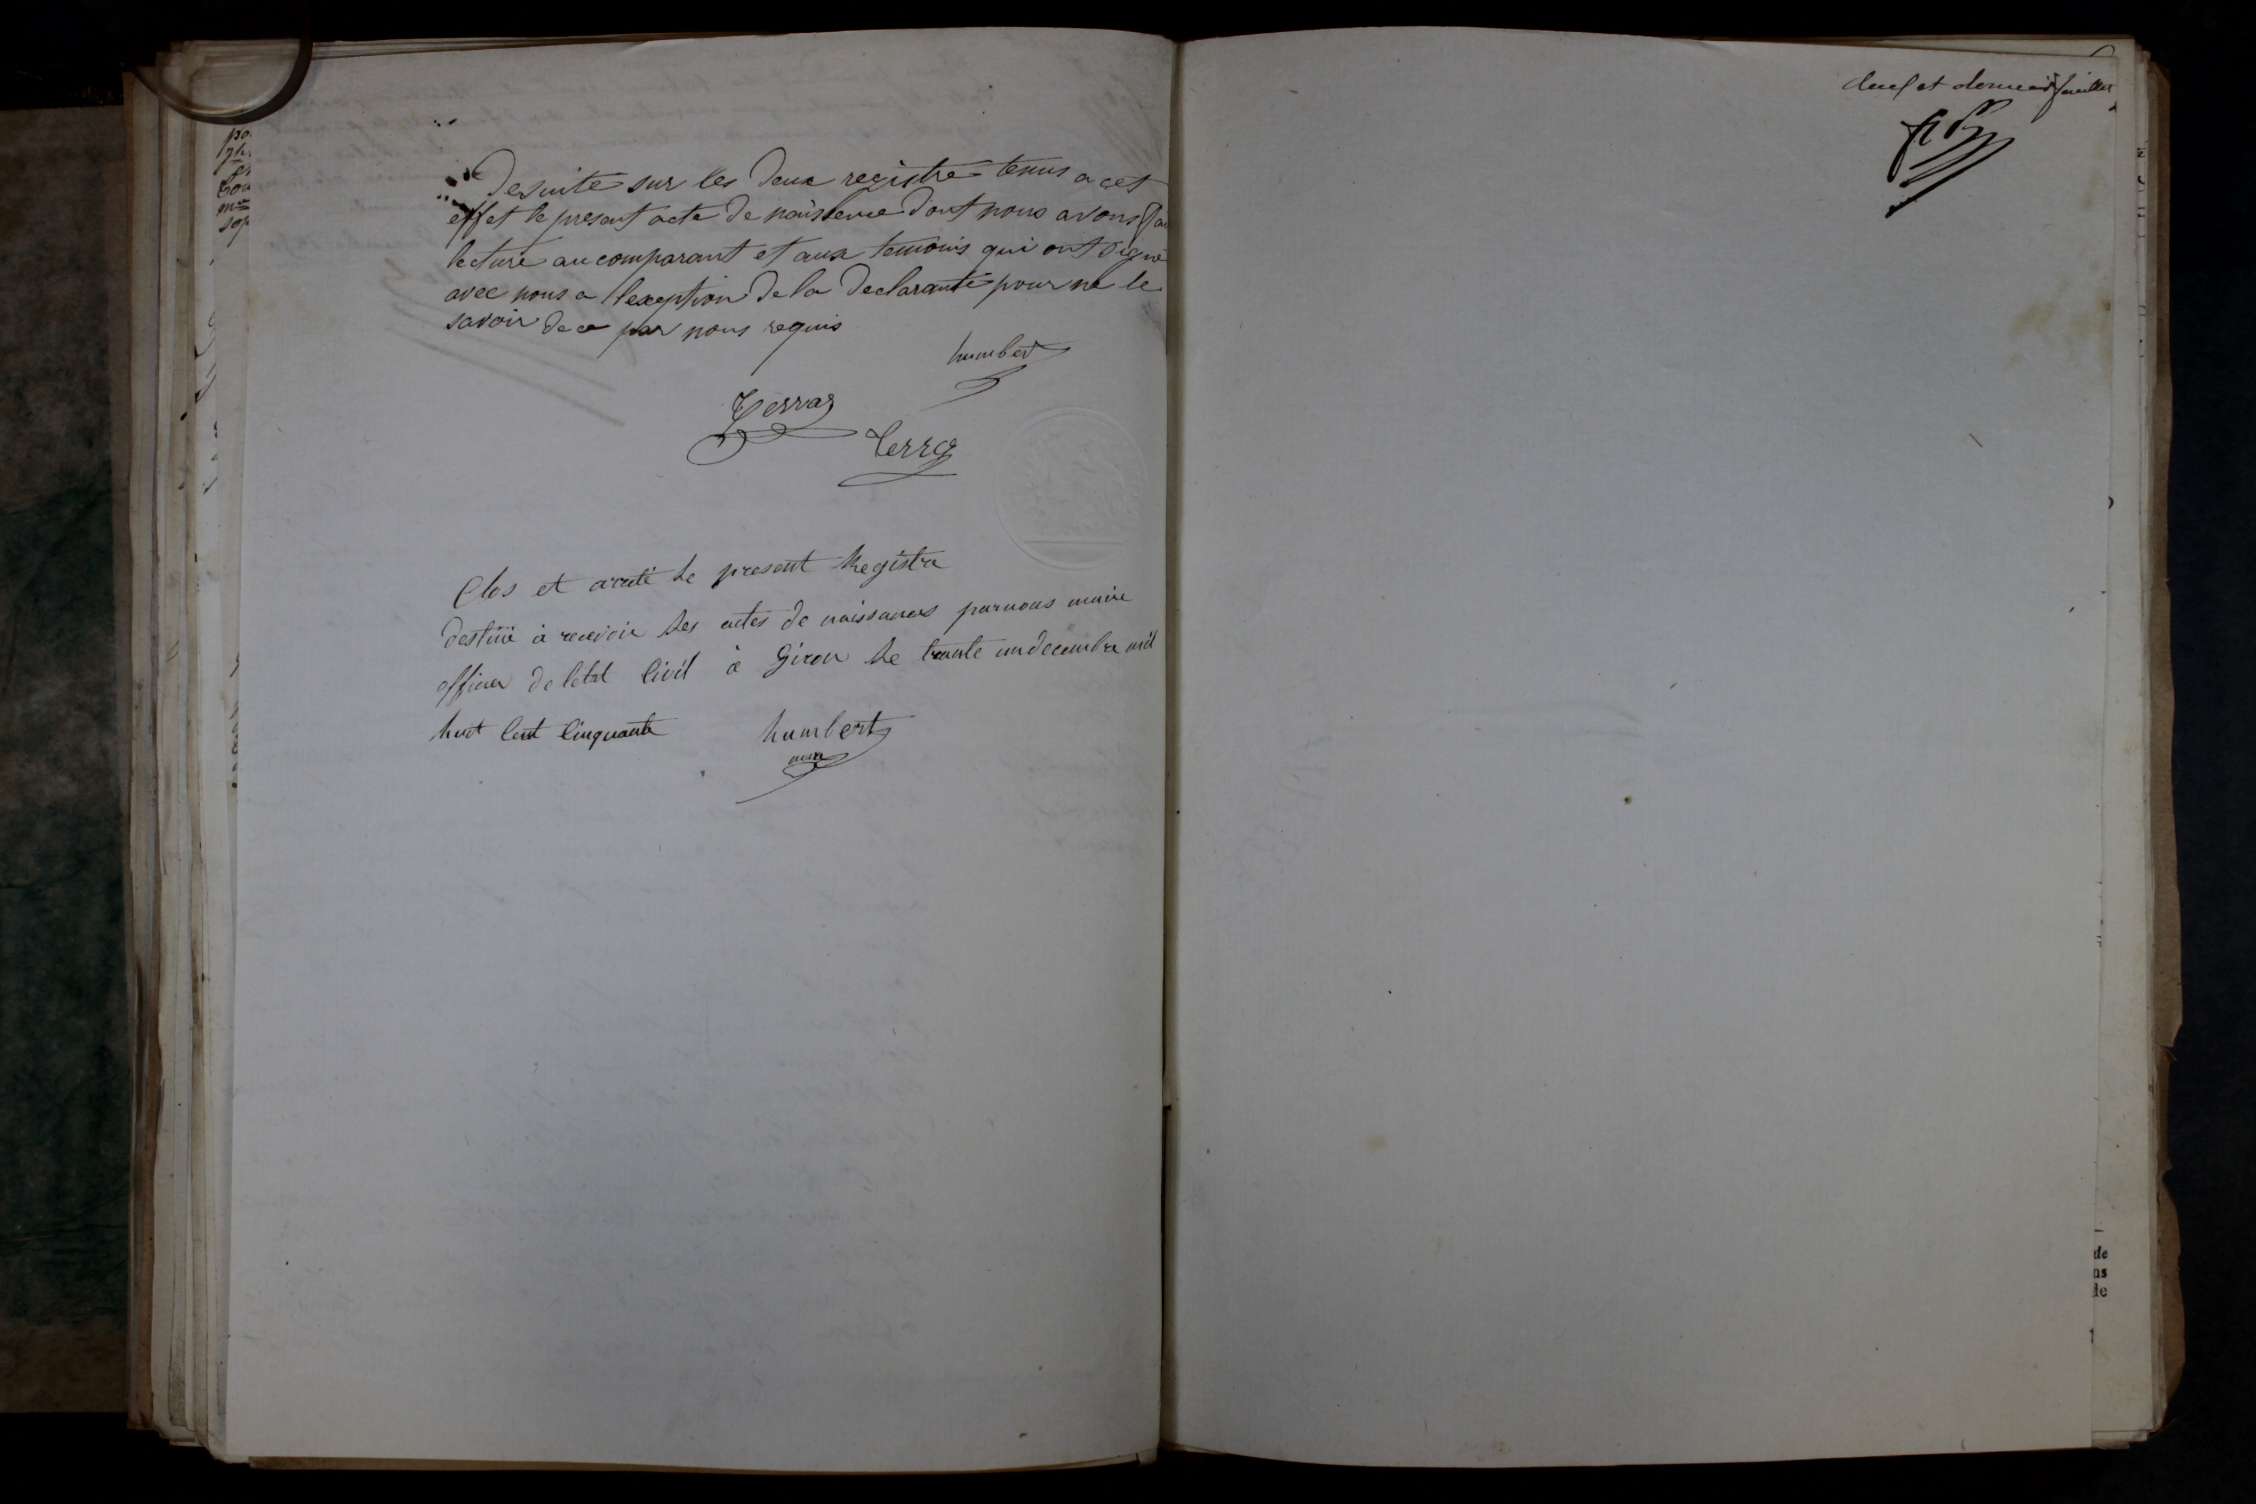 po.
De suite sur les deux registre tenus a cet
effet le present acte de naissence dont nous avons
lecture au comparant et aux temoins qui ont signé
avec nous a lexeption de la declarante pour ne le
savoir de ce par nous requis
humbert
Terraz
Terraz
Clos et arreté le present Registre
destiné à recevoir les actes de naissances par nous maire
officier de létat Civil à Giron le trente un decembre mil
huit Cent Cinquante
humbert
maire
et dernier feuillet
de
ns
de